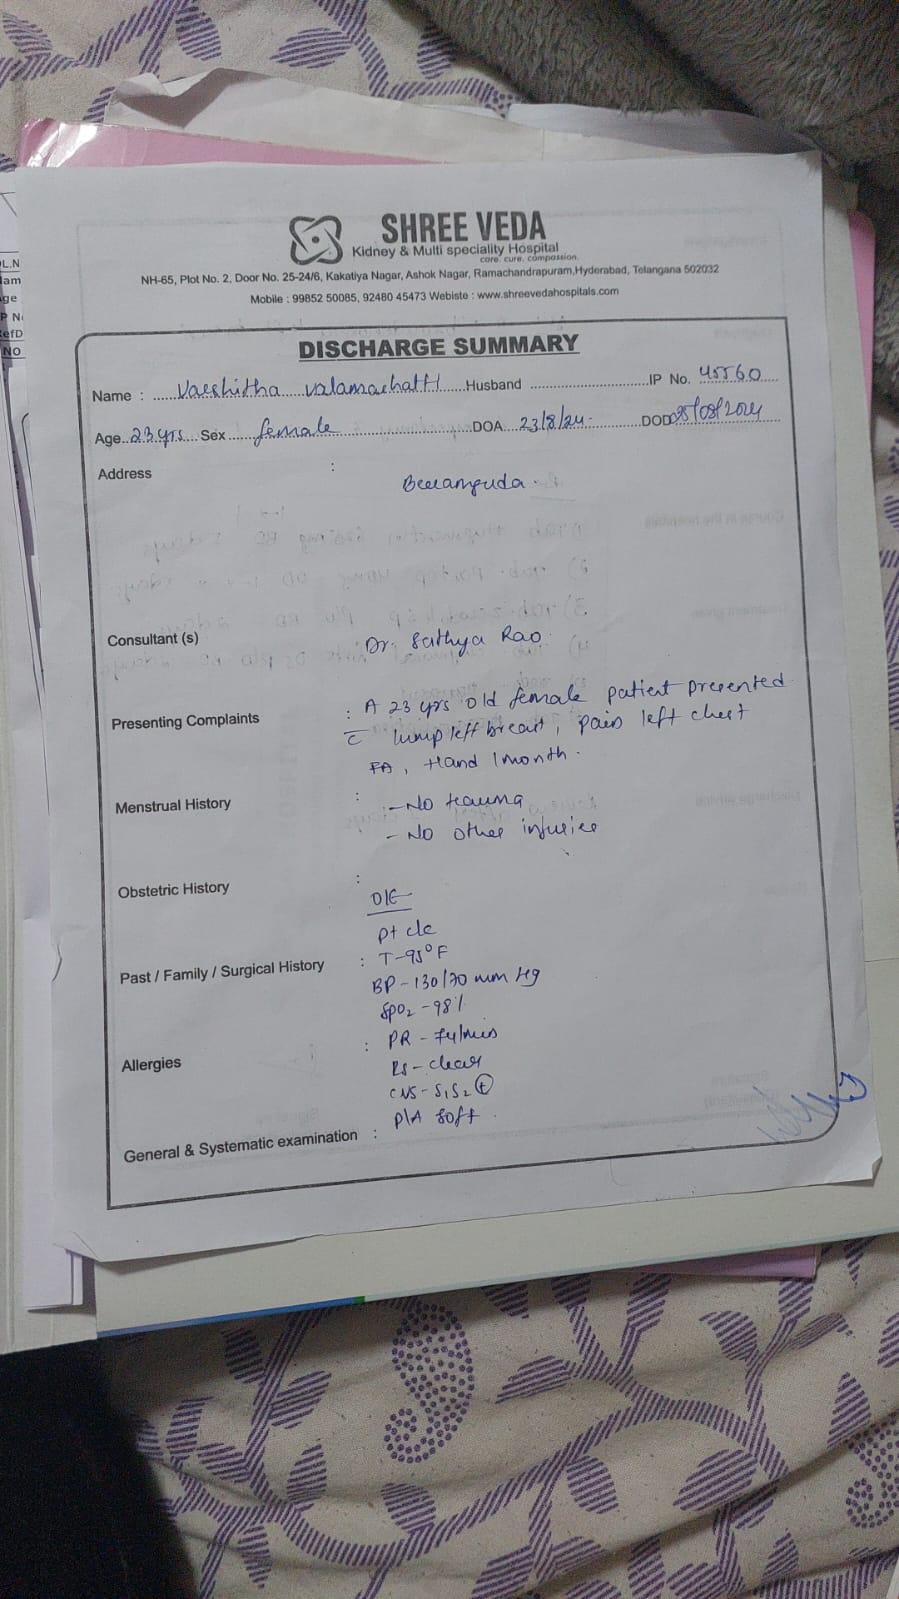 SHREE VEDA
Kidney & Multi speciality Hospital
care. cure. compassion.
NH-65, Plot No. 2, Door No. 25-24/6, Kakatiya Nagar, Ashok Nagar, Ramachandrapuram,Hyderabad, Telangana 502032
Mobile : 99852 50085, 92480 45473 Webiste : www.shreevedahospitals.com
DISCHARGE SUMMARY
Name : Husband IP No. 45560
Age. 23 yrs Sex female DOA. 23/8/24 DOD 25/08/2024
Address :
Beeramguda
Consultant (s) : Dr. Sathya Rao
Presenting Complaints : A 23 yrs old female patient presented
c̄ lump left breast, pain left chest
FA, Hand 1 month.
Menstrual History : - No trauma
- No other injuries
Obstetric History :
O/E
pt c/c
Past / Family / Surgical History : T-95°F
BP - 130/70 mm Hg
SpO2 - 98%
Allergies : PR - 74/min
RS - clear
CVS - S1S2 (+)
P/A soft.
General & Systematic examination :